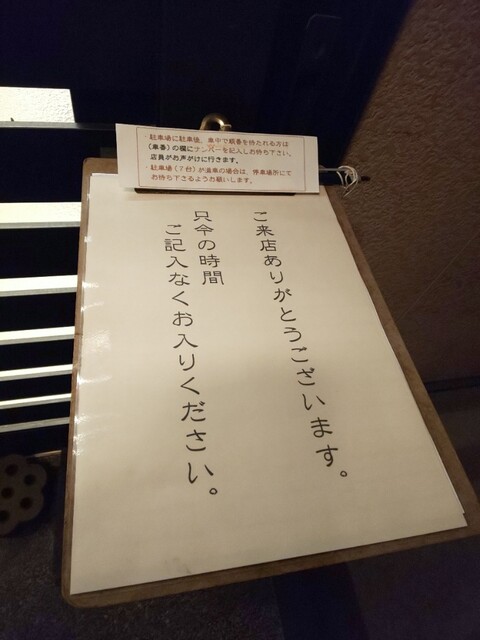 ・駐車場に駐車後、車中で順番を待たれる方は
(車番)の欄にナンバーを記入しお待ち下さい。
店員がお声がけに行きます。
・駐車場(7台)が満車の場合は、停車場所にて
お待ち下さるようお願いします。
ご来店ありがとうございます。
只今の時間
ご記入なくお入りください。